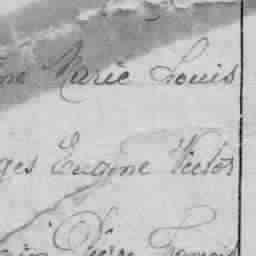 ne Marie Louis
ges Eugène Victor
Pierre François